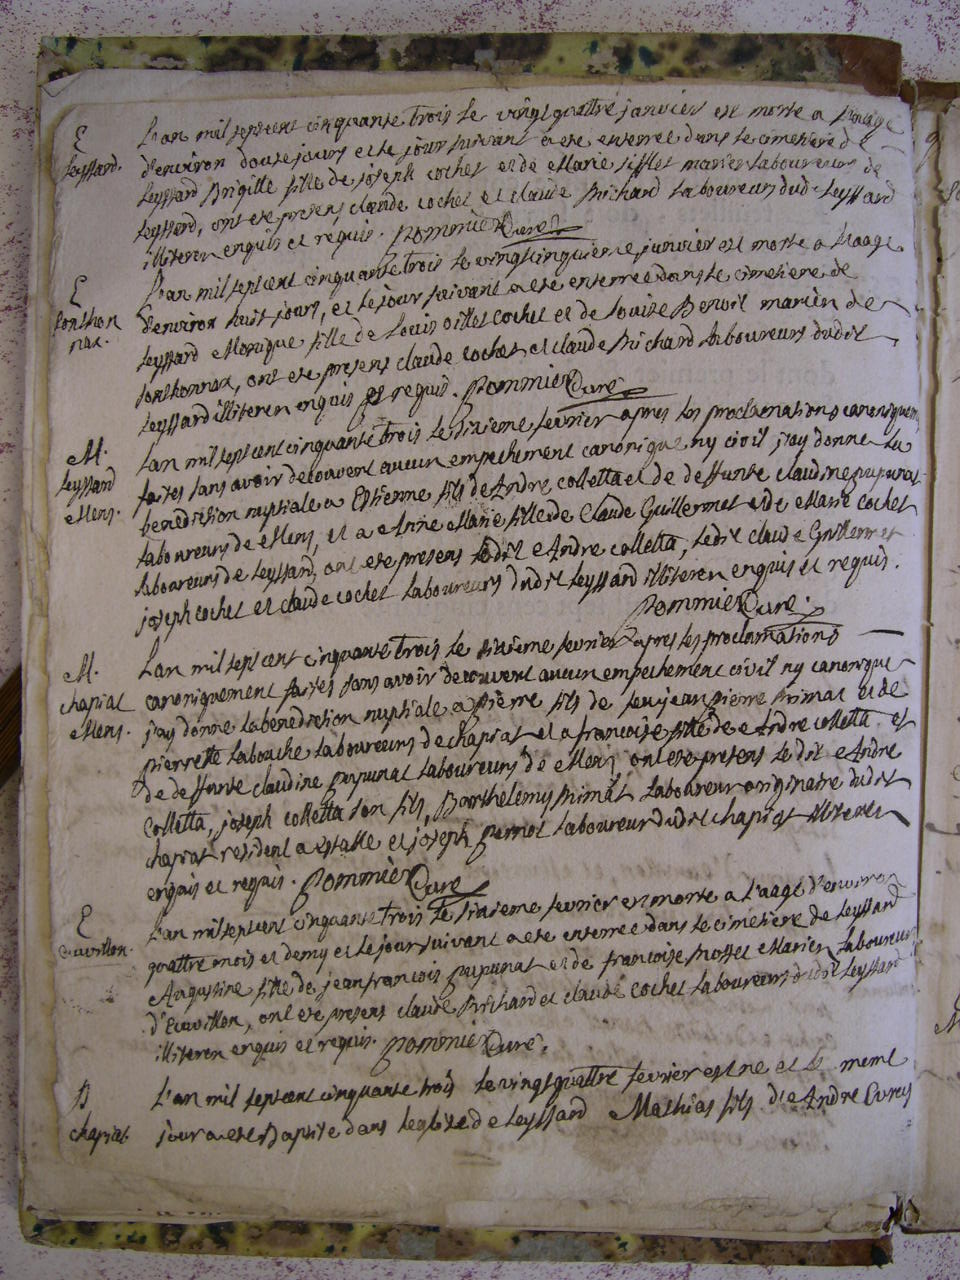 E
Leyssard.
L'an mil sept cent cinquante trois le vingt quattre janvier est morte a l'aage
d'environ douse jours et le jour suivant a eté enterrée dans le cimetiere de
Leyssard Brigitte fille de joseph cochet et de Marie sifflet mariés laboureurs de
Leyssard, ont eté presens claude cochet et claude Brichard laboureurs dud. Leyssard
illiteres enquis et requis. Pommier Curé
E
Sonthon
nax.
L'an mil sept cent cinquante trois le vingt cinquieme janvier est morte a l'aage
d'environ huit jours, et le jour suivant a eté enterrée dans le cimetiere de
Leyssard Monique fille de Louis cochet et de Louise Benoit mariés de
Sonthonnax, ont eté presens claude cochet et claude Brichard laboureurs dudit
Leyssard illiteres enquis et requis. Pommier Curé
M.
Leyssard
Mens.
Lan mil sept cent cinquante trois le sixieme fevrier apres les proclamations canoniquem
faites sans avoir decouvert aucun empechement canonique ny civil j'ay donné la
benediction nuptiale a Estienne fils de Andre colletta et de deffunte claudine pupunat
laboureurs de Mens, et a Anne Marie fille de Claude Guillermet et de Marie cochet
laboureurs de Leyssard, ont eté presens ledit Andre colletta, ledit claude Guillermet
joseph cochet et claude cochet laboureurs dudit Leyssard illiteres enquis et requis.
Pommier Curé.
M.
chapiat
Mens.
Lan mil sept cent cinquante trois le sixieme fevrier apres les proclamations
canoniquement faites sans avoir decouvert aucun empechement civil ny canonique
j'ay donné la benediction nuptiale a pierre fils de feu jean pierre Primat et de
pierrette Labouche laboureurs de chapiat et a francoise fille de Andre colletta et
de deffunte claudine pupunat laboureurs de Mens, ont eté presens le dit Andre
Colletta, joseph colletta son fils, Barthelemy Primat laboureur originaire dudit
chapiat resident a et joseph pernot laboureur dudit chapiat illiteres
enquis et requis. Pommier Curé
E
Ecuvillon.
L'an mil sept cent cinquante trois le sixieme fevrier est morte a l'aage d'environ
quattre mois et demy et le jour suivant a eté enterrée dans le cimetiere de Leyssard
Augustine fille de jean francois pupunat et de francoise Mariés laboureurs
d'Ecuvillon, ont eté presens claude Brichard et claude cochet laboureurs dudit Leyssard
illiteres enquis et requis. Pommier Curé.
B
chapiat.
L'an mil sept cent cinquante trois le vingt quattre fevrier est né et le meme
jour a eté Baptisé dans leglise de Leyssard Mathias fils d'Andre